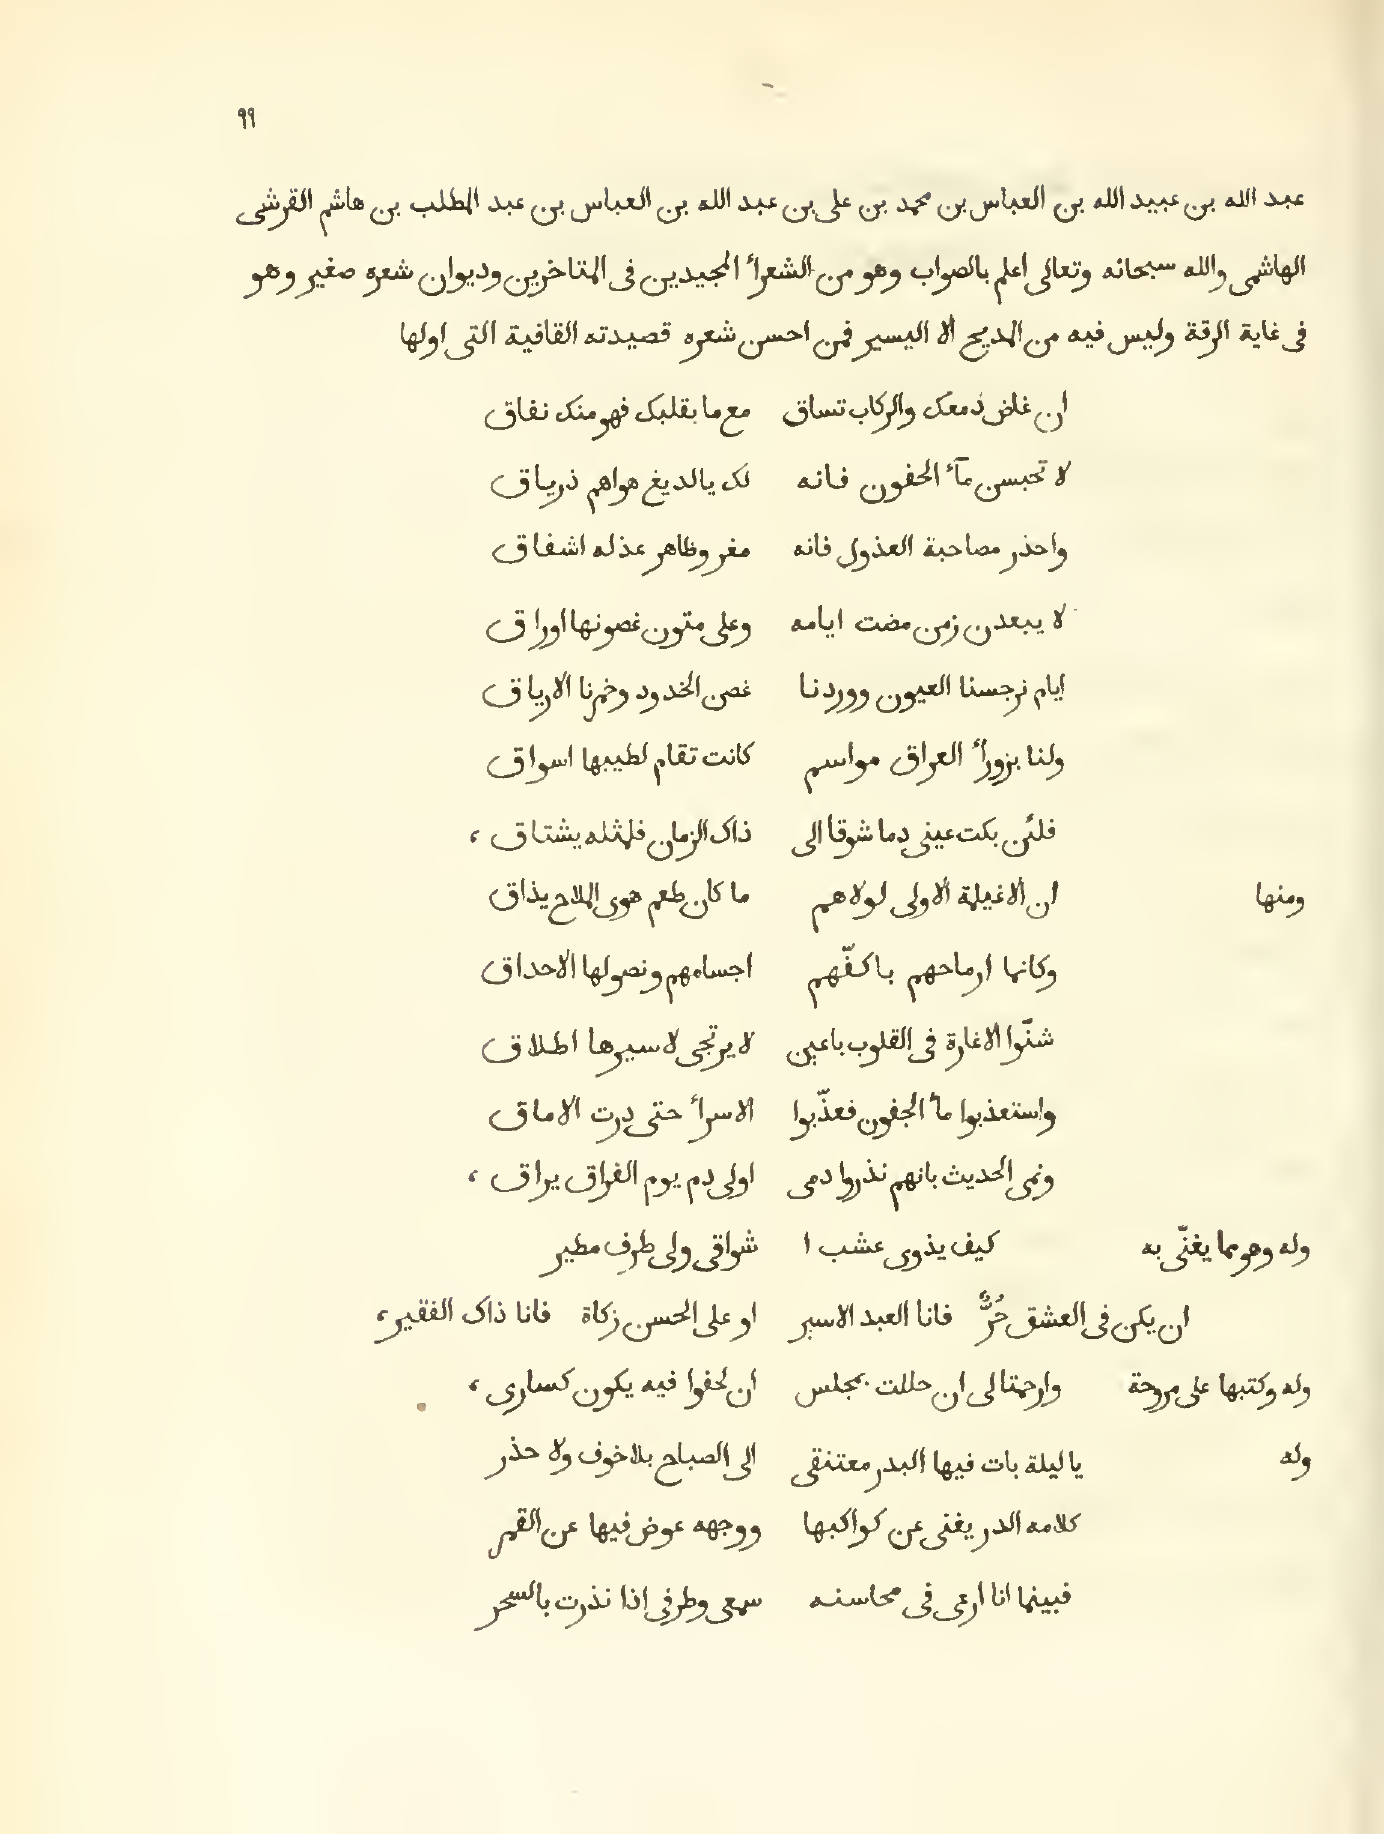 ٩٩
عبد الله بن عبيد الله بن العباس بن محمد بن على بن عبد الله بن العباس بن عبد المطلب بن هاشم القرشى
الهاشمى والله سبحانه وتعالى اعلم بالصواب وهو من الشعرأ المجيدين فى المتاخرين وديوان شعره صغير وهو
فى غاية الرقة وليس فيه من المديح الا اليسير فمن احسن شعره قصيدته القافية التى اولها
ان غاض دمعك والركاب تساق مع ما بقلبك فهو منك نفاق
لا تحبسن مآء الجفون فانه لك يالديغ هواهم درياق
واحذر مصاحبة العذول فانه مغر وظاهر عذله اشفاق
لا يبعدن زمن مضت ايامه وعلى متون غصونها اوراق
ايام نرجسنا العيون ووردنا غض الخدود وخمرنا الارياق
ولنا بزورأ العراق مواسم كانت تقام لطيبها اسواق
فلئن بكت عينى دما شوقا الى ذاك الزمان فلمثله يشتاق ،
ومنها ان الاغيلمة الاولى لولاهم ما كان طعم هوى الملاح يذاق
وكانما ارماحهم باكفّهم اجسامهم ونصولها الاحداق
شنّوا الاغارة فى القلوب باعين لا يرتجى لاسيرها اطلاق
واستعذبوا مأ الجفون فعذّبوا الاسرأ حتى درت الاماق
ونمى الحديث بانهم نذروا دمى اولى دم يوم الفراق يراق ،
وله وهو مما يغنّى به كيف يذوى عشب ا شواقى ولى طرف مطير
ان يكن فى العشق حُرٌّ فانا العبد الاسير او على الحسن زكاة فانا ذاك الفقير ،
وله وكتبها على مروحة وارحمتا لى ان حللت بمجلس ان لحفوا فيه يكون كسارى ،
وله يا ليلة بات فيها البدر معتنقى الى الصباح بلا خوف ولا حذر
كلامه الدر يغنى عن كواكبها ووجهه عوض فيها عن القمر
فبينما انا ارعى فى محاسنه سمعى وطرفى اذا نذرت بالسحر